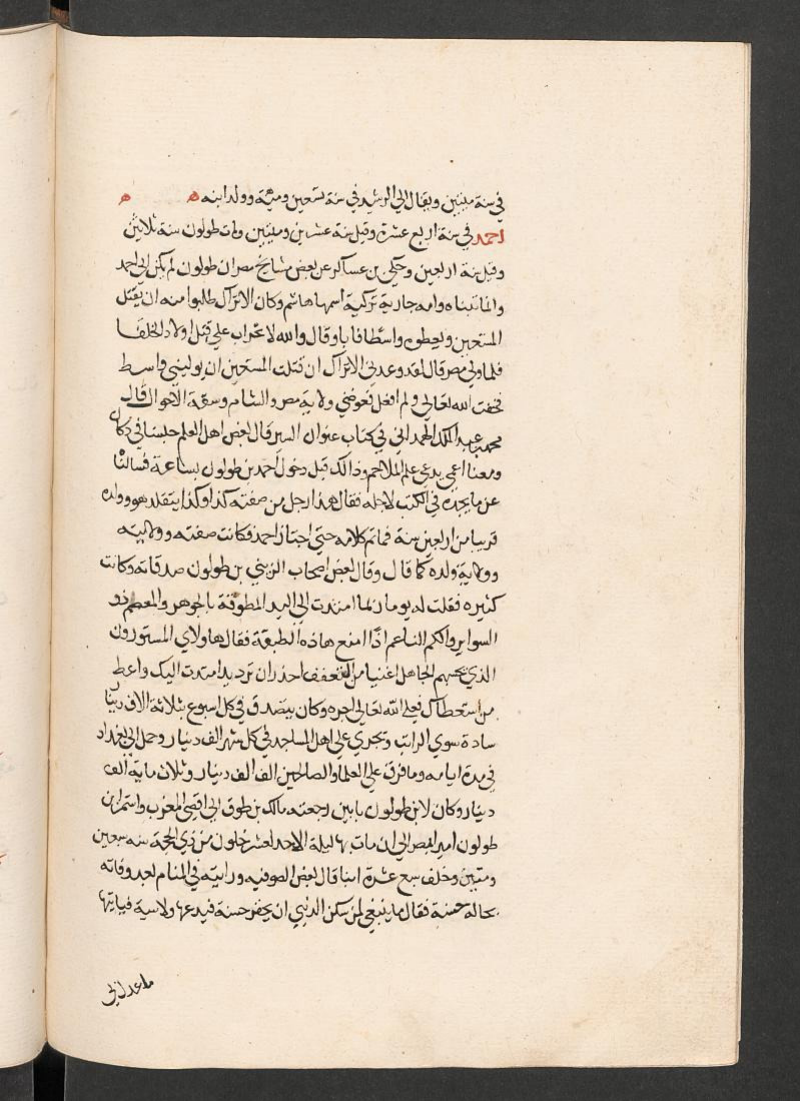 في سنة ميتين ويقال الي الرشيد في سنة تسعين ومية وولد ابنه ه ه
احمد في سنة اربع عشرة وقيل سنة عشرين وميتين ومات طولون سنة ثلاثين
وقيل سنة اربعين وحكي بن عساكر عن بعض مشايخ مصر ان طولون لم يكن ابي احمد
وانما تبناه وامه جارية تركية اسمها هاشم وكان الاتراك طلبوا منه ان يقتل
المستعين ويعطوه واسطا فابا وقال والله لا تجراب علي قتل اولاد الخلفا
فلما ولي مصر قال لقد وعدني الاتراك ان قتلت المستعين ان يوليني واسط
فخفت الله تعالي ولم افعل فعوضني ولاية مصر والشام وسعة الاحوال قال
محمد بن عبد الملك الهمداني في كتاب عنوان السير قال بعض اهل العلم جلسنا في دكان
ومعنا اعمي يدعي علم الملاحم وذالك قبل دخول احمد بن طولون بساعة فسالنا
عن ما يجده في الكتب لاجله فقال هذا رجل من صفته كذا وكذا يتقلد هو وولده
قريبا من اربعين سنة فما تم كلامه حتي اجتاز احمد فكانت صفته وولايته
وولاية ولده كما قال وقال بعض اصحاب الزيني بن طولون صدقاته وكانت
كثيره فقلت له يوما ربما امتدت الي اليد المطوقة بالجوهر والمعصم ذو
السوابر والكم الناعم اذا امنع هاذه الطبقة فقال هاولاي المستورون
الذي يحسبهم الجاهل اغنيا من التعفف احذر ان ترد يدا امتدت اليك واعط
من استعطاك فعلي الله تعالي اجره وكان يتصدق في كل اسبوع بثلاثة الاف دينا
سادة سوي الراتب وتجري علي اهل المساجد في كل شهر الف دينار وحمل الي بغداد
في مدة ايامه وما فرق علي العلما والصالحين الف الف دينار وثلاث ماية الف
دينار وكان لابن طولون ما بين رحبته مالك بن طوق الي اقصي المغرب واستمر ابن
طولون امير بمصر الي ان مات بها ليلة الاحد لعشر خلون من ذي الحجة سنه سبعين
ومتين وخلف سبع عشرة ابنا قال بعض الصوفيه ورايته في المنام بعد وفاته
بحالة حسنة فقال ما ينبغي لمن سكن الدنيي ان يحقر حسنة فيدعها ولا سية فياتيها
ما عدل بي